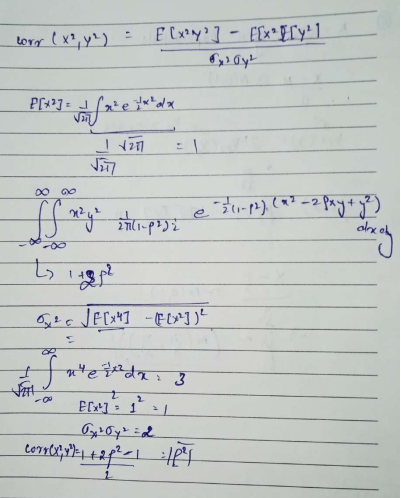 corr (x², y²) = E[x²y²] - E[x²]E[y²] / σx²σy²
E[x²] = 1/√2π ∫ x² e^-½x² dx
1/√2π √2π = 1
∫∞-∞ ∫∞-∞ x²y² 1/2π(1-ρ²)½ e^-1/2(1-ρ²) (x² - 2ρxy + y²) dxdy
↳ 1+2ρ²
σx² = √E[x⁴] - (E[x²])²
=
1/√2π ∫∞-∞ x⁴ e^-½x² dx = 3
E[x²]² = 1² = 1
σx²σy² = 2
corr(x²,y²) = 1+2ρ²-1 / 2 = |ρ²|